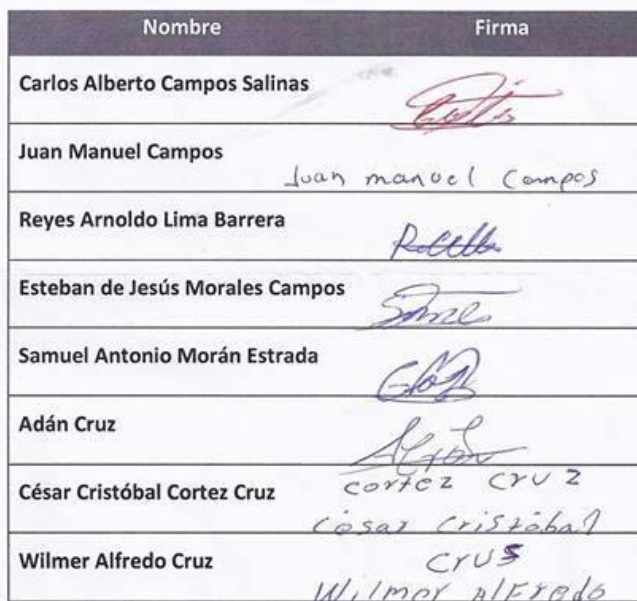 Nombre Firma
Carlos Alberto Campos Salinas
Juan Manuel Campos
Juan manuel Campos
Reyes Arnoldo Lima Barrera
Esteban de Jesús Morales Campos
Samuel Antonio Morán Estrada
Adán Cruz
cortez cruz
César Cristóbal Cortez Cruz
césar cristóbal
Wilmer Alfredo Cruz
crus
Wilmer Alfredo